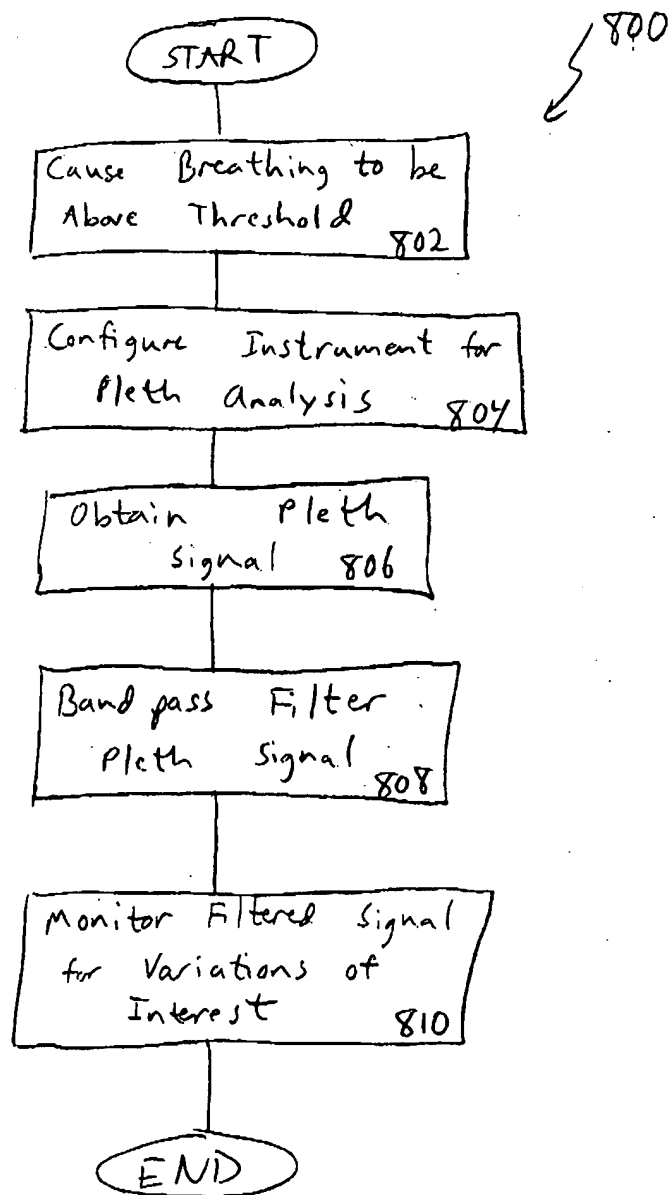 800
START
Cause Breathing to be
Above Threshold
802
Configure Instrument for
Pleth Analysis
804
Obtain Pleth
Signal 806
Band pass Filter
Pleth Signal
808
Monitor Filtered Signal
for Variations of
Interest 810
END